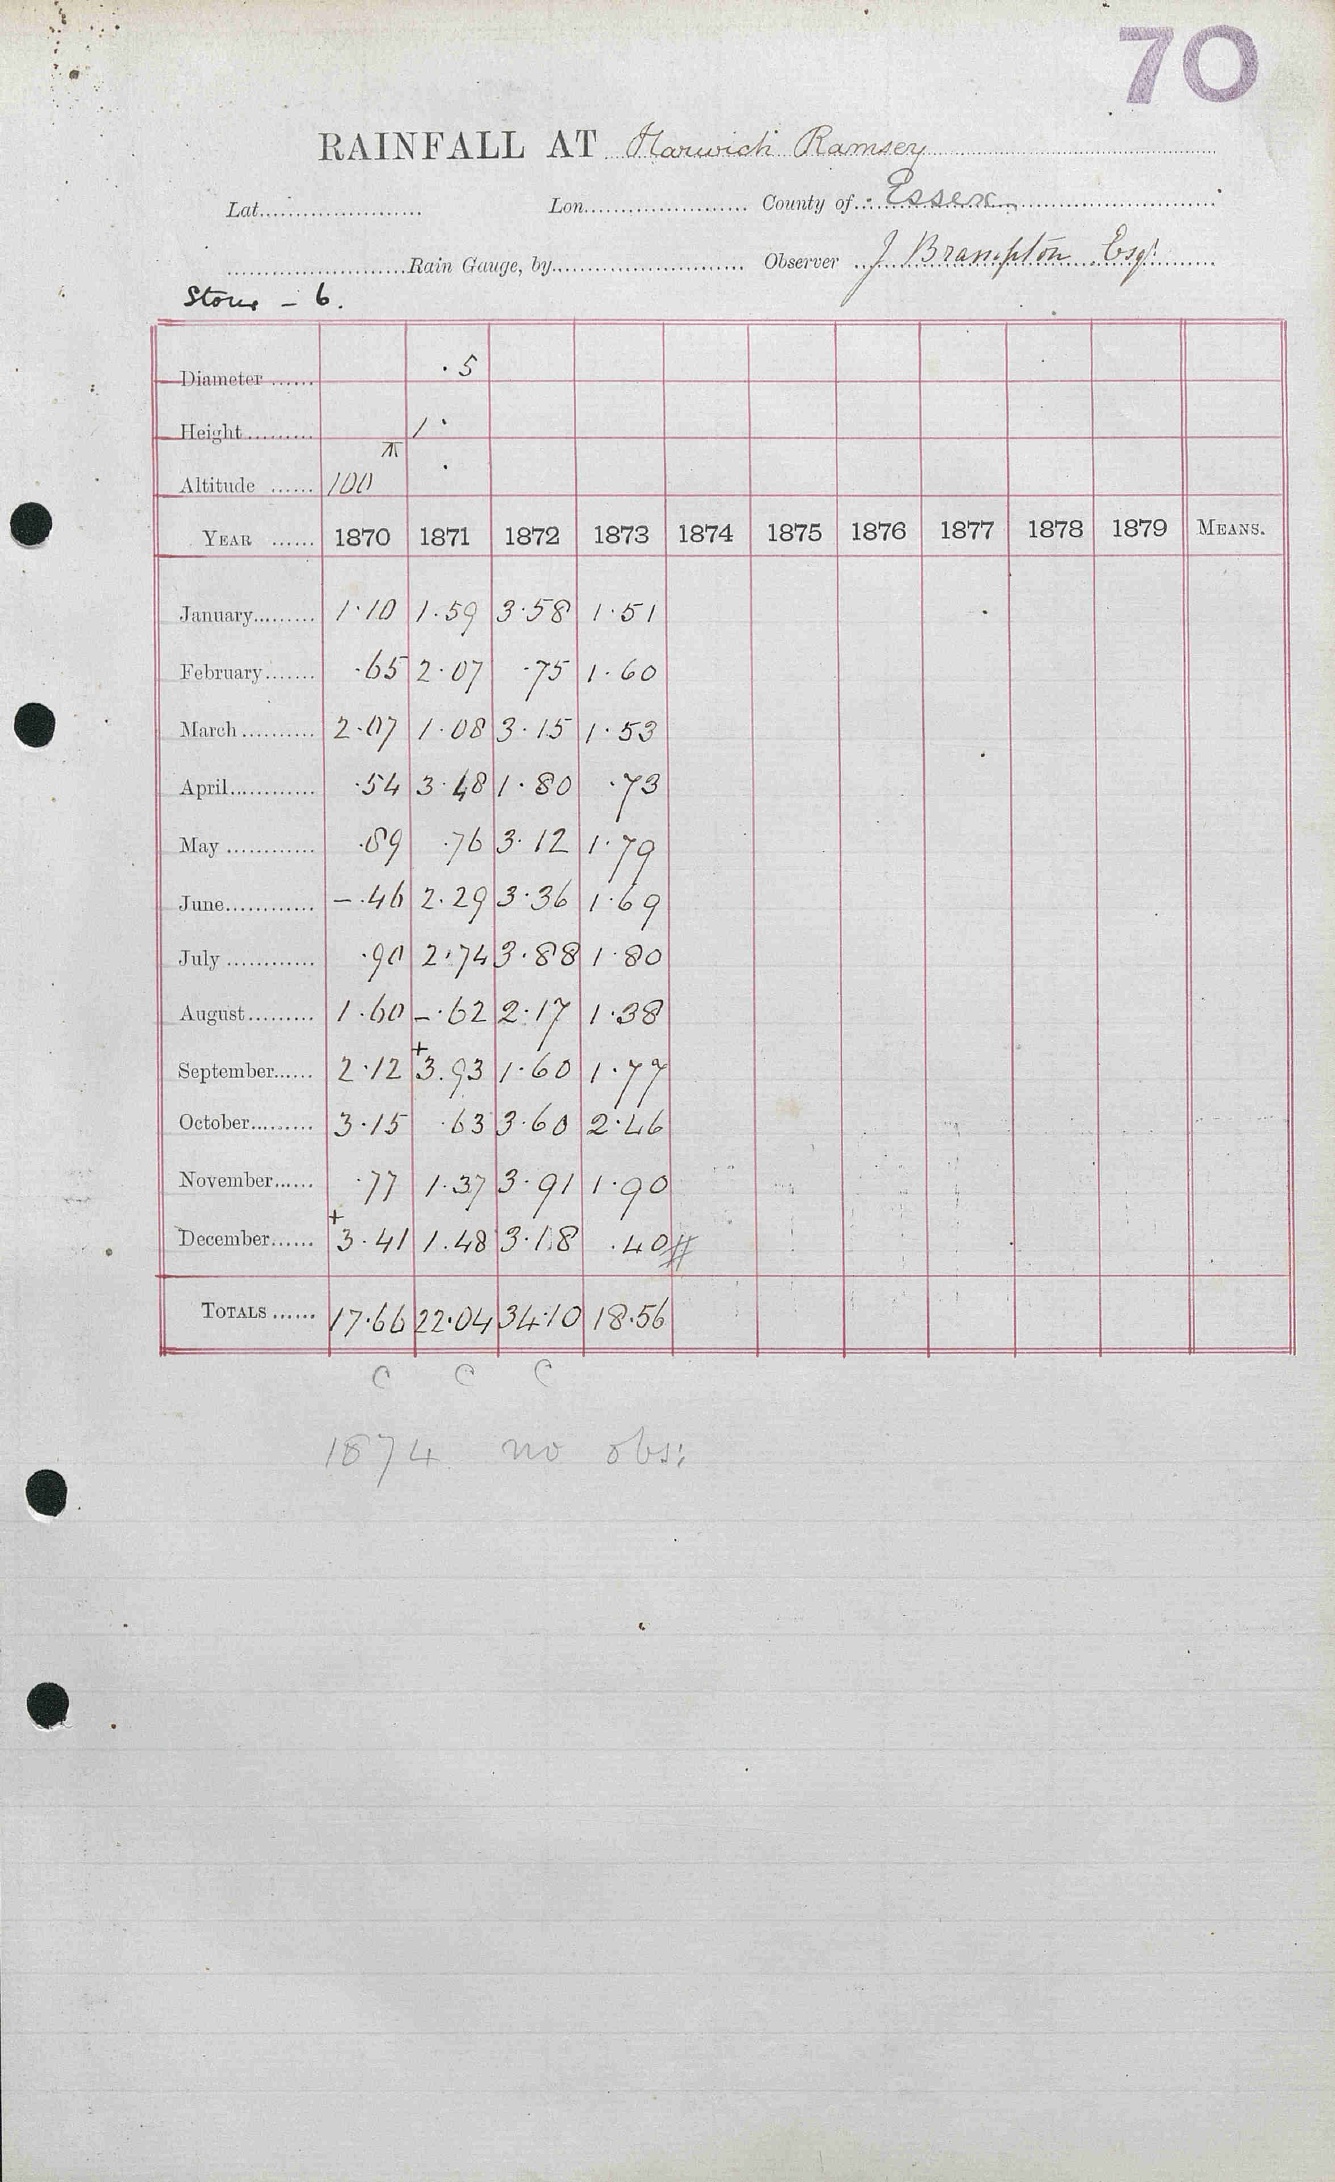 70
RAINFALL AT Harwich Ramsey
Lat. Lon. County of Essex
Rain Gauge, by Observer J Brampton Esqr
Stour - 6.
Diameter 5
Height 1
Altitude 100
YEAR 1870 1871 1872 1873 1874 1875 1876 1877 1878 1879 MEANS.
January 1.10 1.59 3.58 1.51
February .65 2.07 .75 1.60
March 2.07 1.08 3.15 1.53
April .54 3.48 1.80 .73
May .89 .76 3.12 1.79
June - .46 2.29 3.36 1.69
July .90 2.74 3.88 1.80
August 1.60 - .62 2.17 1.38
September 2.12 +3.93 1.60 1.77
October 3.15 .63 3.60 2.46
November .77 1.37 3.91 1.90
December +3.41 1.48 3.18 .40 #
TOTALS 17.66 22.04 34.10 18.56
C C C
1874 no obs: